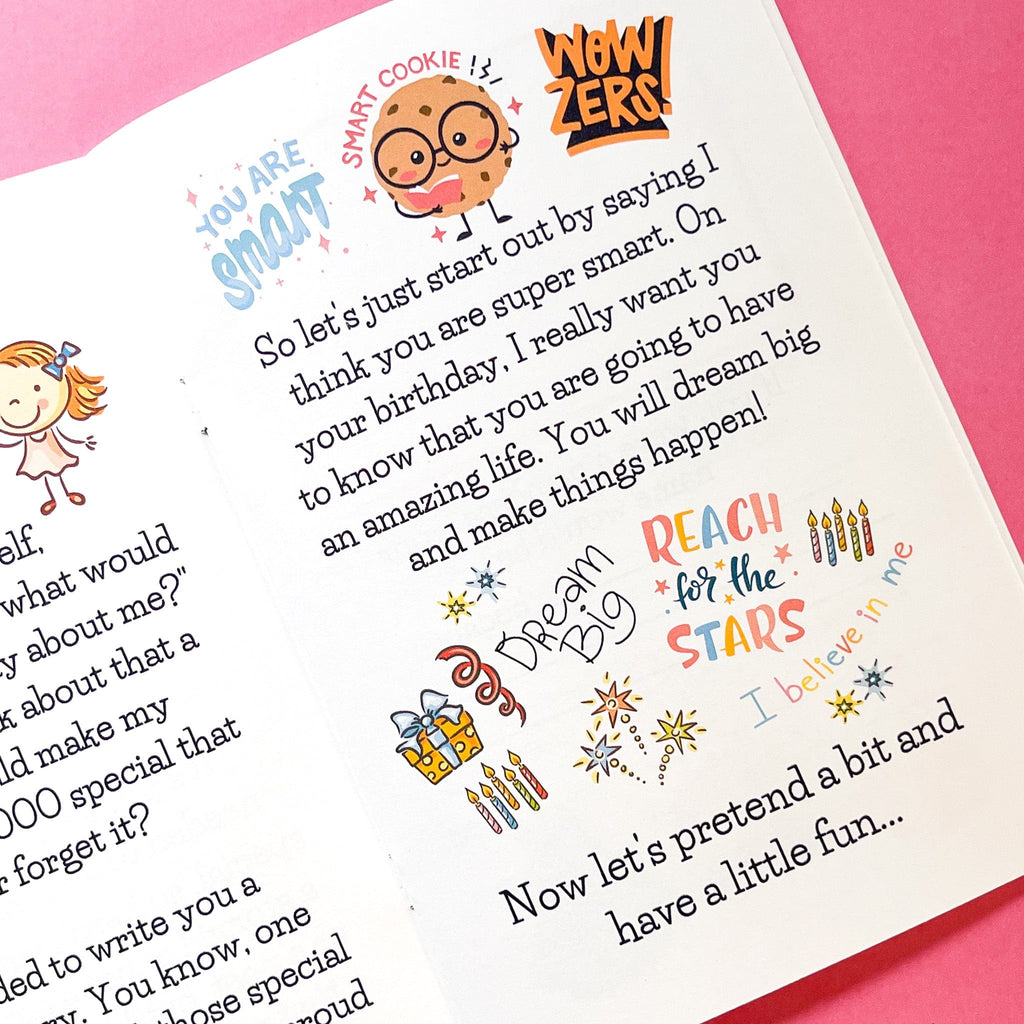 elf,
what would
about me?"
about that a
make my
special that
forget it?
to write you a
You know, one
those special
YOU ARE
SMART
SMART COOKIE
WOW
ZERS!
So let's just start out by saying I
think you are super smart. On
your birthday, I really want you
to know that you are going to have
an amazing life. You will dream big
and make things happen!
DREAM
BIG
REACH
for the
STARS
I believe in me
Now let's pretend a bit and
have a little fun...